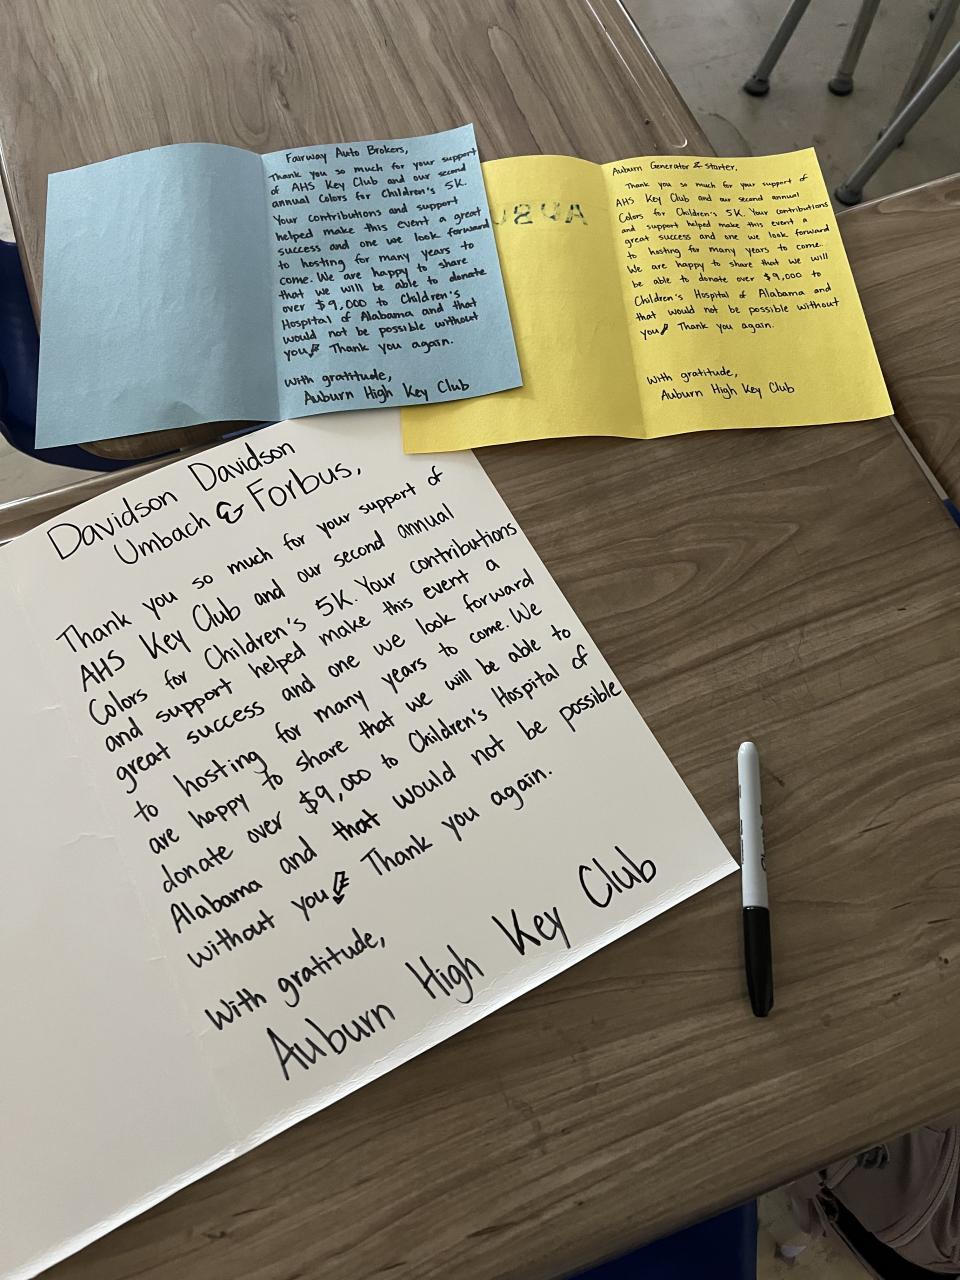 Fairway Auto Brokers,
Thank you so much for your support
of AHS Key Club and our second
annual Colors for Children's 5K.
Your contributions and support
helped make this event a great
success and one we look forward
to hosting for many years to
come. We are happy to share
that we will be able to donate
over $9,000 to Children's
Hospital of Alabama and that
would not be possible without
you! Thank you again.
With gratitude,
Auburn High Key Club
Auburn Generator & starter,
Thank you so much for your support of
AHS Key Club and our second annual
Colors for Children's 5K. Your contributions
and support helped make this event a
great success and one we look forward
to hosting for many years to come.
We are happy to share that we will
be able to donate over $9,000 to
Children's Hospital of Alabama and
that would not be possible without
you! Thank you again.
With gratitude,
Auburn High Key Club
Davidson Davidson
Umbach & Forbus,
Thank you so much for your support of
AHS Key Club and our second annual
Colors for Children's 5K. Your contributions
and support helped make this event a
great success and one we look forward
to hosting for many years to come. We
are happy to share that we will be able to
donate over $9,000 to Children's Hospital of
Alabama and that would not be possible
without you! Thank you again.
With gratitude,
Auburn High Key Club